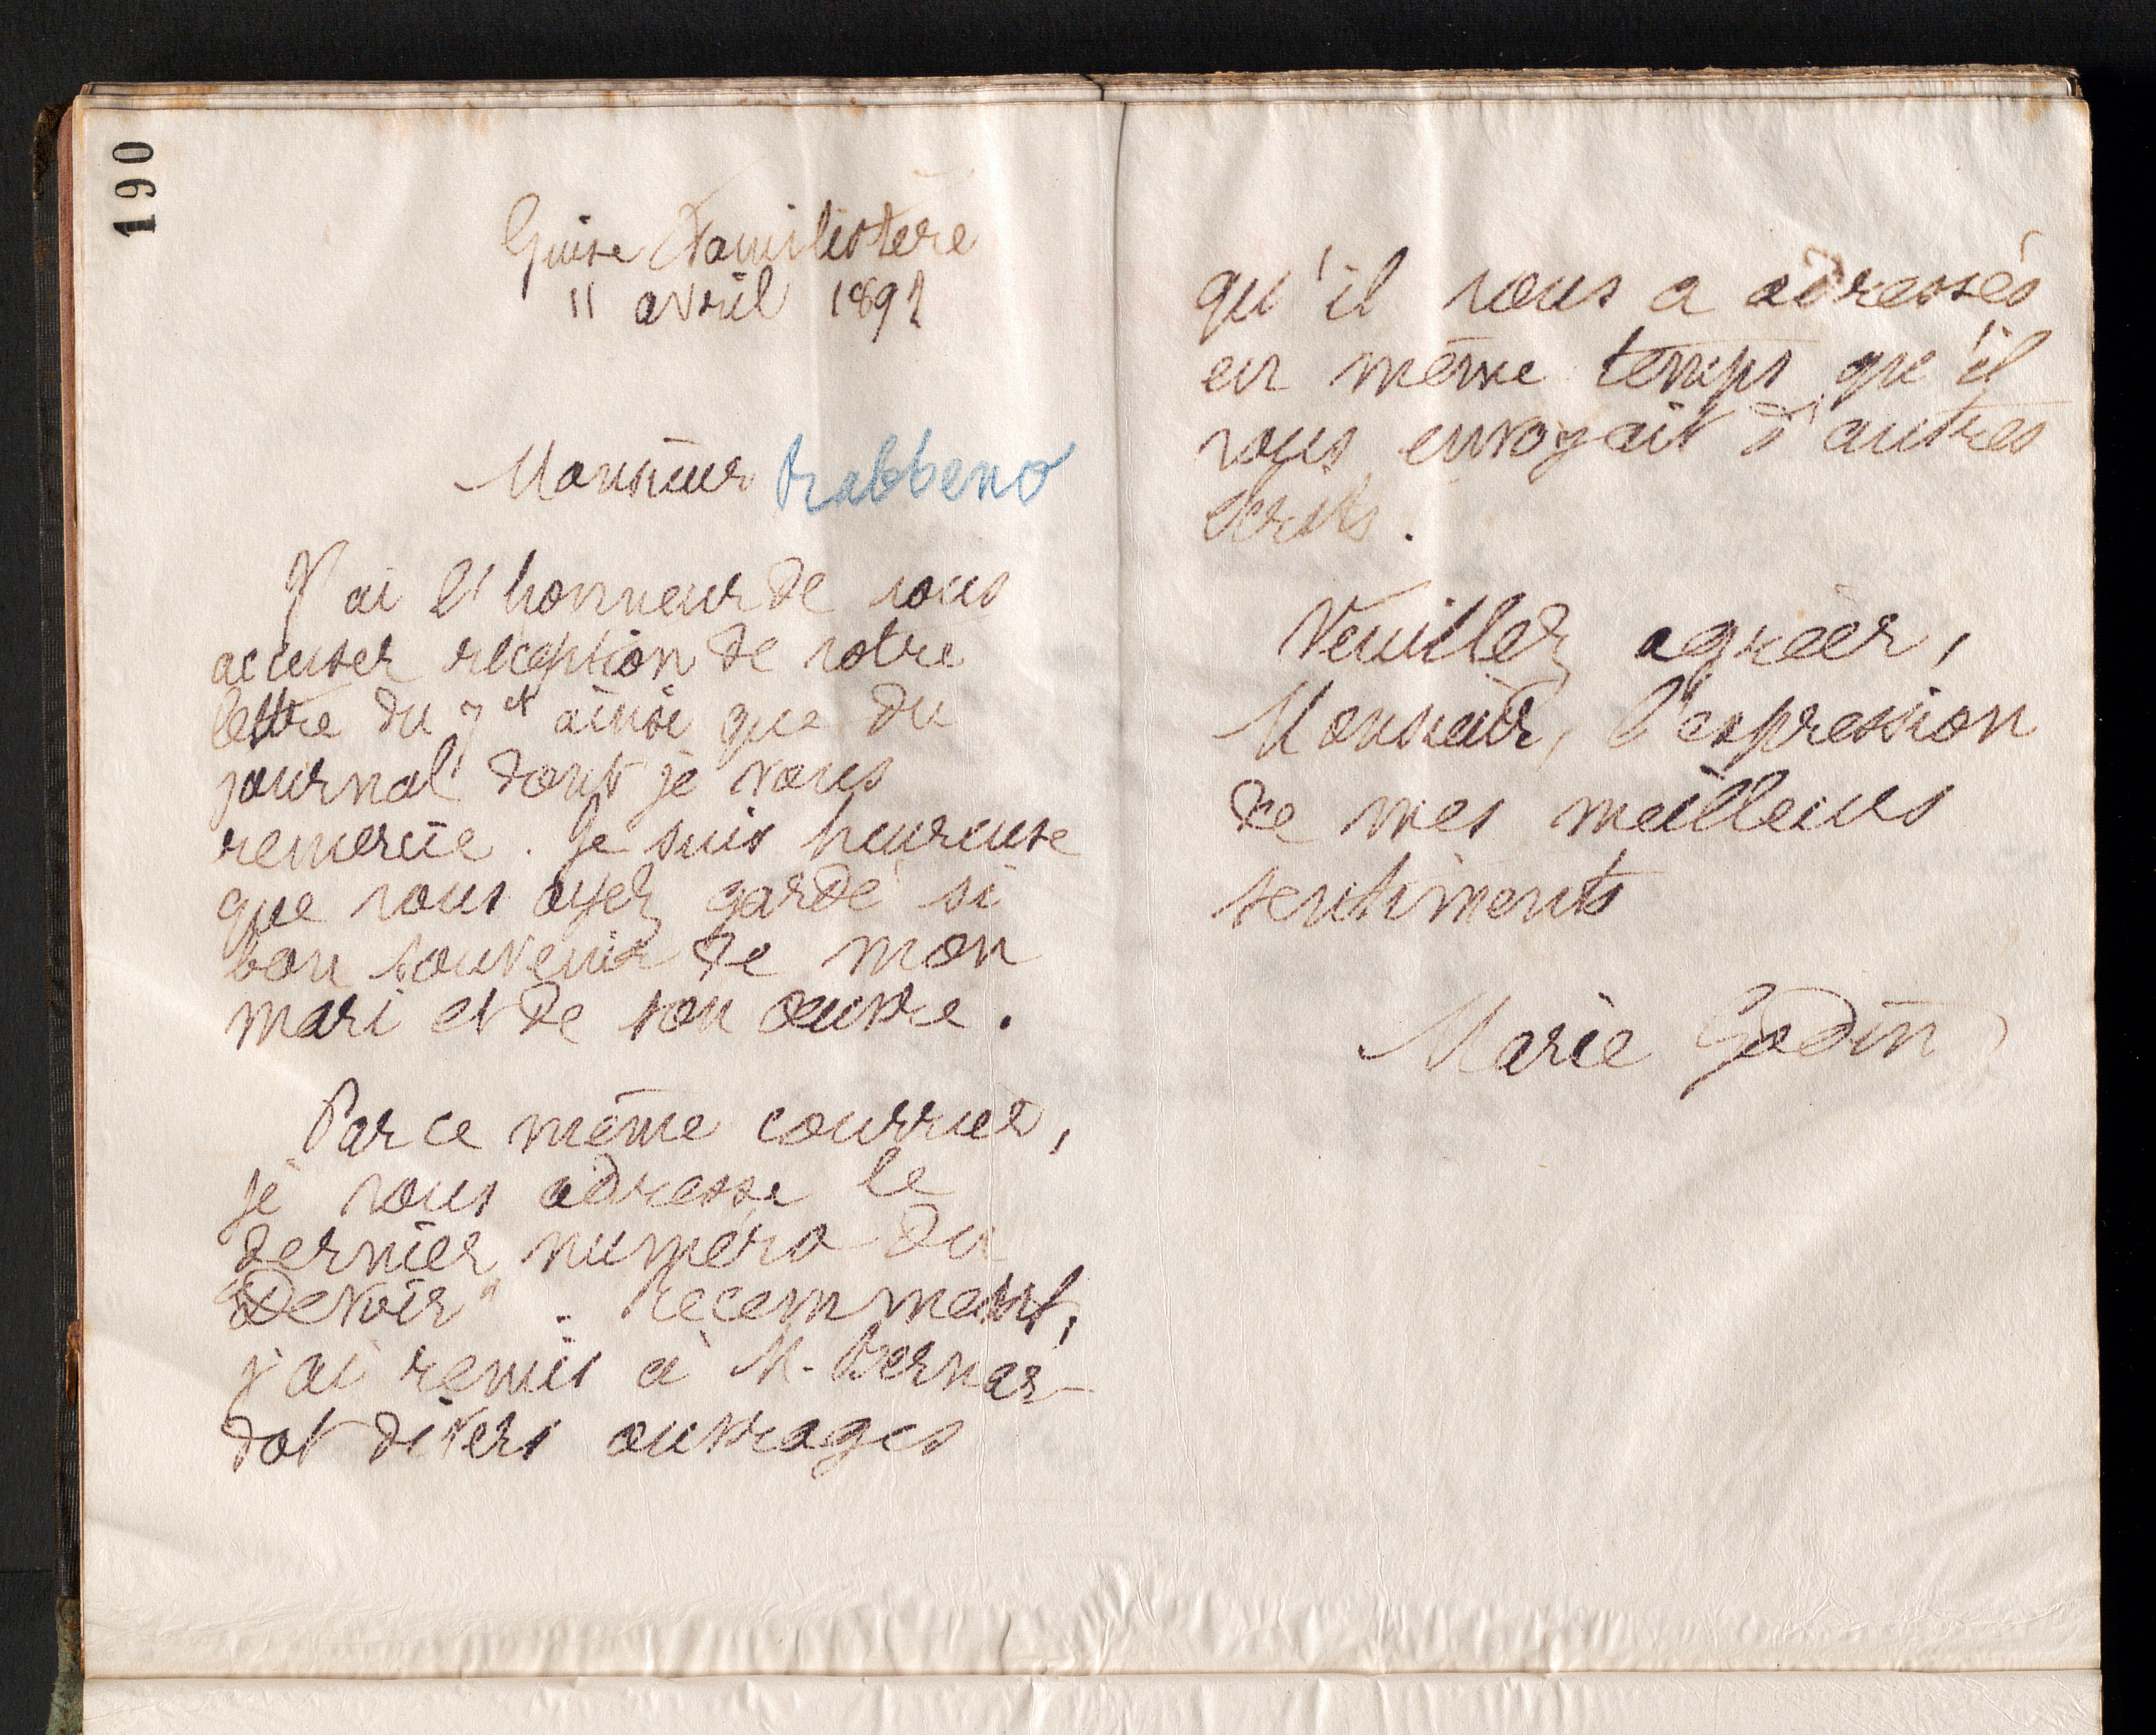 190
Guise Familistère
11 avril 1891
Monsieur Rabbeno
J'ai l'honneur de vous
accuser réception de votre
lettre du 7 et ainsi que du
journal dont je vous
remercie. Je suis heureuse
que vous ayez gardé si
bon souvenir de mon
mari et de son œuvre.
Par ce même courrier,
je vous adresse le
dernier numéro du
"Devoir". Récemment,
j'ai remis à M. Bernar-
dot divers ouvrages
qu'il vous a adressés
en même temps qu'il
vous envoyait d'autres
écrits.
Veuillez agréer,
Monsieur, l'expression
de mes meilleurs
sentiments
Marie Godin